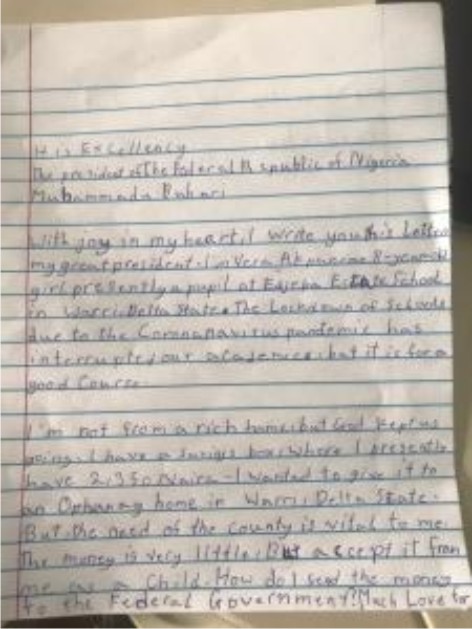 His Excellency
The president of The Federal Republic of Nigeria
Muhammadu Buhari
With joy in my heart, I write you this Letter
my great president. I'm Vera 8-year-old
girl presently a pupil at Ejeba Estate School
in Warri, Delta State. The Lockdown of Schools
due to the Coronanavirus pandemic has
interrupted our academics, but it is for a
good Course.
I'm not from a rich home, but God kept us
going. I have a box, where I presently
have 2,350 Naira. I wanted to give it to
an Orphanag home in Warri, Delta State.
But the need of the county is vital to me.
The money is very little. But accept it from
me as a Child. How do I send the money
to the Federal Government? Much Love for